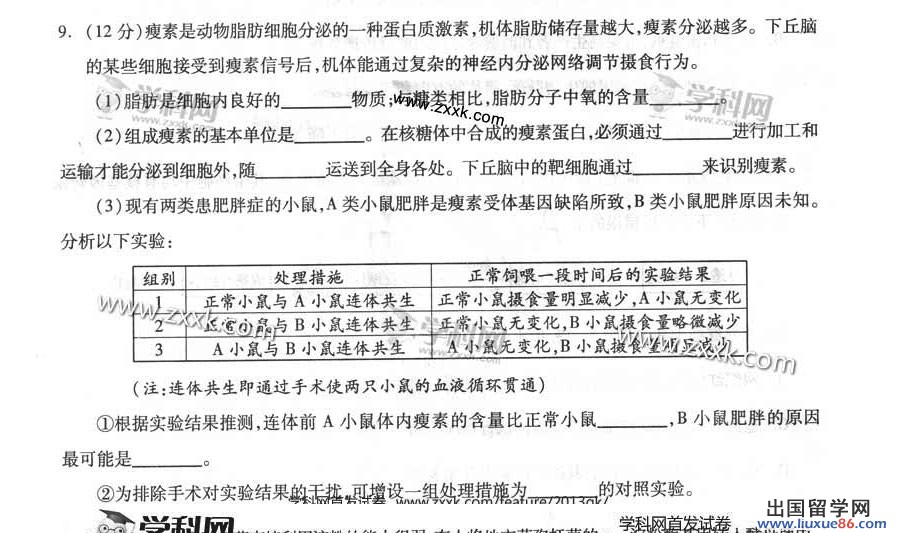 9. (12分)瘦素是动物脂肪细胞分泌的一种蛋白质激素,机体脂肪储存量越大,瘦素分泌越多。下丘脑
的某些细胞接受到瘦素信号后,机体能通过复杂的神经内分泌网络调节摄食行为。
(1)脂肪是细胞内良好的________物质;与糖类相比,脂肪分子中氧的含量________。
(2)组成瘦素的基本单位是________。在核糖体中合成的瘦素蛋白,必须通过________进行加工和
运输才能分泌到细胞外,随________运送到全身各处。下丘脑中的靶细胞通过________来识别瘦素。
(3)现有两类患肥胖症的小鼠,A类小鼠肥胖是瘦素受体基因缺陷所致,B类小鼠肥胖原因未知。
分析以下实验:
组别 处理措施 正常饲喂一段时间后的实验结果
1 正常小鼠与A小鼠连体共生 正常小鼠摄食量明显减少,A小鼠无变化
2 正常小鼠与B小鼠连体共生 正常小鼠无变化,B小鼠摄食量略微减少
3 A小鼠与B小鼠连体共生 A小鼠无变化,B小鼠摄食量明显减少
(注:连体共生即通过手术使两只小鼠的血液循环贯通)
①根据实验结果推测,连体前A小鼠体内瘦素的含量比正常小鼠________,B小鼠肥胖的原因
最可能是________。
②为排除手术对实验结果的干扰,可增设一组处理措施为________的对照实验。
学科网首发试卷 www.zxxk.com/feature/2013gk/
学科网
学科网首发试卷
学科网
www.zxxk.com
学科网
www.zxxk.com
学科网
www.zxxk.com
出国留学网
www.liuxue86.com